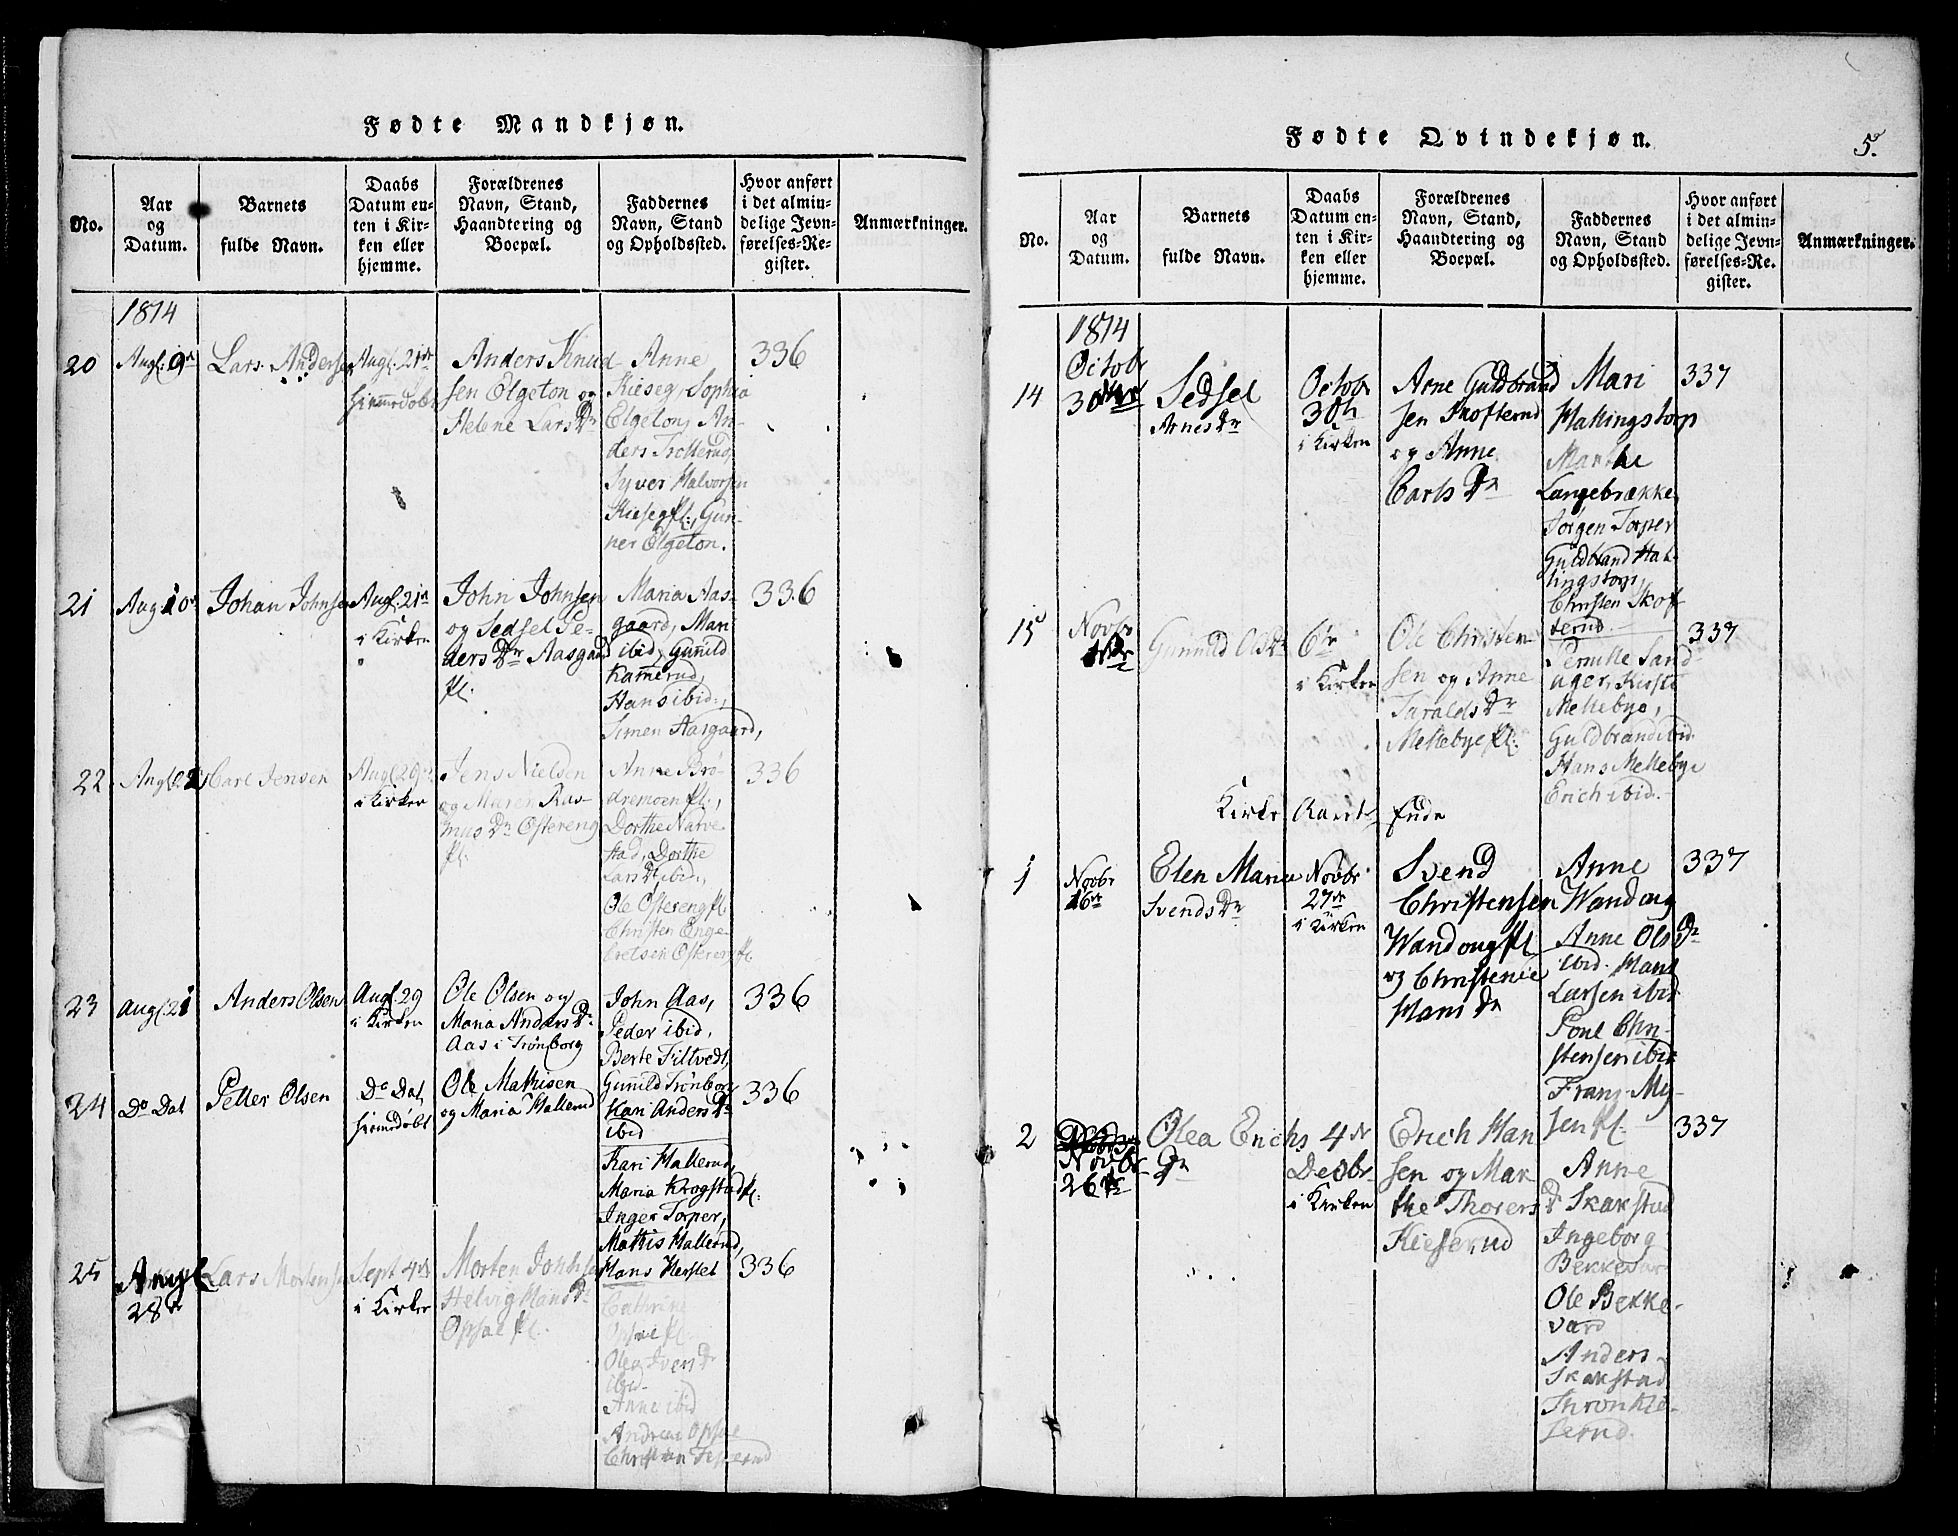 Fødte Mandkjøn.
No.
Aar
og
Datum.
Barnets
fulde Navn.
Daabs
Datum en-
ten i Kir-
ken eller
hjemme.
Forældrenes
Navn, Stand,
Haandtering og
Boepæl.
Faddernes
Navn, Stand
og Opholdssted.
Hvor anført
i det almin-
delige Jevn-
førelses-Re-
gister.
Anmærkninger.
1814
20
Augſ. 9d
Lars Andersen
Augſ. 21de
hiemedøbt
Anders Knud-
sen Elgeton og
Helene Lars Dr
Anne
Kieseg, Sophia
Elgeton, An-
ders Trollerud,
Syver Halvorsen
Kieseg fl:, Gun-
ner Elgeton.
336
21
Aug 10d
Johan Johnsen
Augſ. 21d
i Kirken
John Johnsen
og Sedsel Pe-
ders Dr Aasgaard
fl:
Maria Aas-
gaard, Mari
ibid, Gunild
Kamerud,
Hans ibid:,
Simen Aasgaard,
336
22
Carl Jensen
Augſ 29
i Kirken
Jens Nielsen
og Maren Ras-
mus Dr Østereng
fl:
Anne Brø-
dremoen fl:,
Dorthe Narve
stad, Dorthe
Lars D ibid:,
Ole Østereng fl.
Christen Enge-
bretsen Østereng fl.
336
23
Augſ 21
Anders Olsen
Augſ. 29
i Kirken
Ole Olsen og
Maria Anders Dr
Aas i Trønborg
John Aas,
Peder ibid,
Berte Tiltvedt,
Gunild Trønborg
Kari Anders Dr
ibid
336
24
Do Dat
Petter Olsen
Do Dat,
hiemdøbt
Ole Mathisen
og Maria Hallerud
Kari Hallerud,
Maria Krogstad fl:
Inger Torper,
Mathis Hallerud,
Hans Herstet
336
25
Augſ
28de
Lars Mortensen
Sept 4de
i Kirken
Morten Johnsen
Helvig Hans Dr
Opsal fl:
Cathrine
Opsal fl.
Olea Ivers Dr
ibid.
Anne ibid
Andreas Opsal
336
Fødte Qvindekjøn.
5.
No.
Aar
og
Datum.
Barnets
fulde Navn.
Daabs
Datum en-
ten i Kir-
ken eller
hjemme.
Forældrenes
Navn, Stand,
Haandtering og
Boepæl.
Faddernes
Navn, Stand
og Opholdssted.
Hvor anført
i det almin-
delige Jevn-
førelses-Re-
gister.
Anmærkninger.
1814
14
Octobr
Sedsel
Arnes Dr
Octobr
30
i Kirken
Arne Guldbrand
sen Skofterud
og Anne
Carls Dr
Mari
Hallingstorp
Marthe
Langebrække
Jørgen Torper
Guldbrand Hal-
lingstorp,
Christen Skof-
terud.
337
15
Novbr
Gunnild Ols Dr
6te
i Kirken
Ole Christen-
sen og Anne
Taralds Dr
Mellebye fl:
Pernille Sand-
ager, Kirsti
Mellebye,
Guldbrand ibid.
Hans Mellebye
Erich ibid.
337
Kirke Aarets Ende
1
Novbr
16de
Elen Maria
Svends Dr
Novbr
27de
i Kirken
Svend
Christensen
Wandong fl
og Christenie
Hans Dr
Anne
Wandong
Anne Ols Dr
ibid. Hans
Larsen ibid
Poul Chri-
stensen ibid
Franz My-
sen fl.
337
2
Novbr
26de
Olea Erichs
Dr
4de
Decbr
i Kirken
Erich Han
sen og Mar
the Thorers
Kieserud
Anne
D Skakstad
Ingeborg
Bekkevar
Ole Bekke-
vard
Anders
Skakstad
Thron Kie-
serud.
337